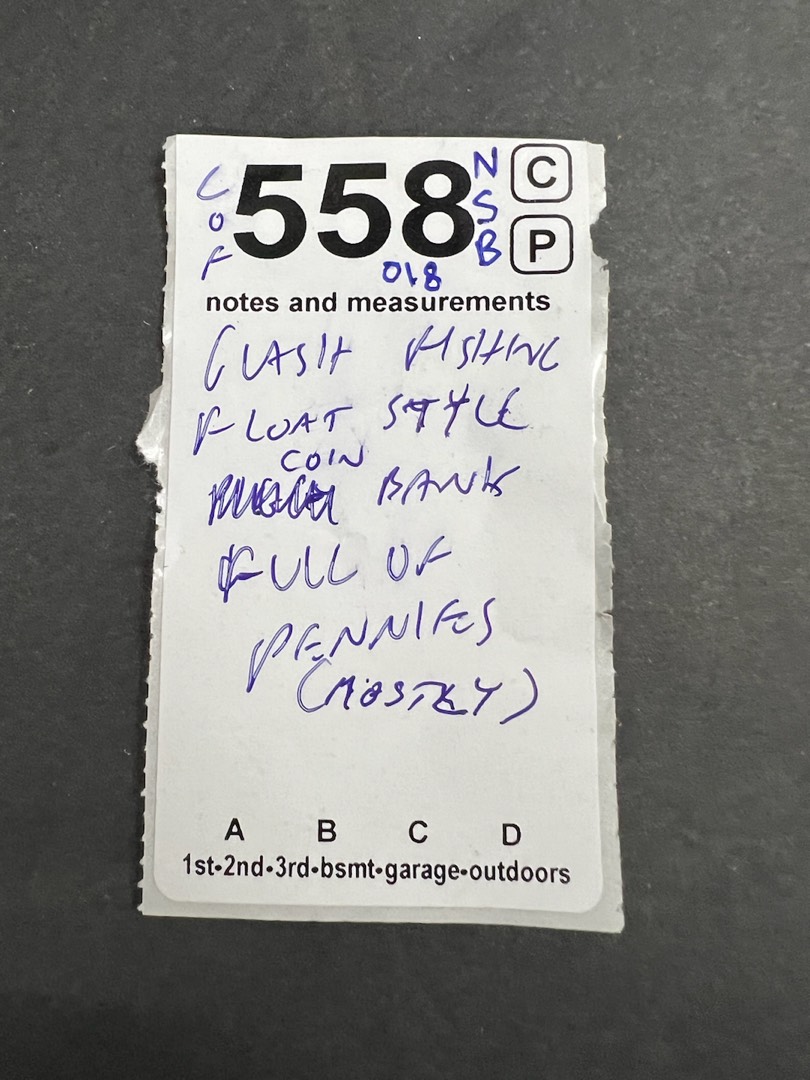 COF 558 NSB C
P
018
notes and measurements
GLASS FISHING
FLOAT STYLE
COIN
BANK
FULL OF
PENNIES
(MOSTLY)
A B C D
1st•2nd•3rd•bsmt•garage•outdoors